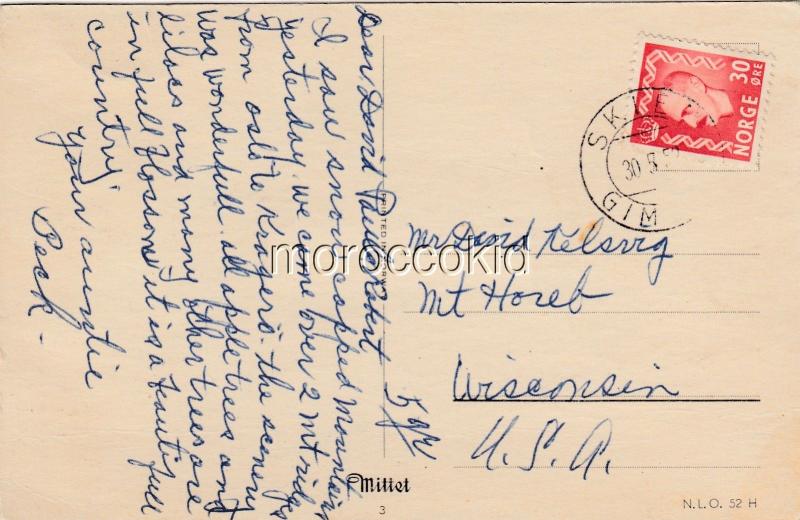 Dear David Paul & Robert
I saw snow-capped mountains
yesterday. we came over 2 mt ridges
from oslo to Kragerö. the scenery
was wonderfull. all apple trees and
lilacs and many other trees are
in full blossom it is a beautifull
country
your auntie
Peck -
PRINTED IN NORWAY
moroccokid
Mr David Kelsvig
Mt Horeb
Wisconsin
U.S.A.
Mittet
3
N.L.O. 52 H
NORGE
30
ØRE
SKIE
30. 5. 5
MID